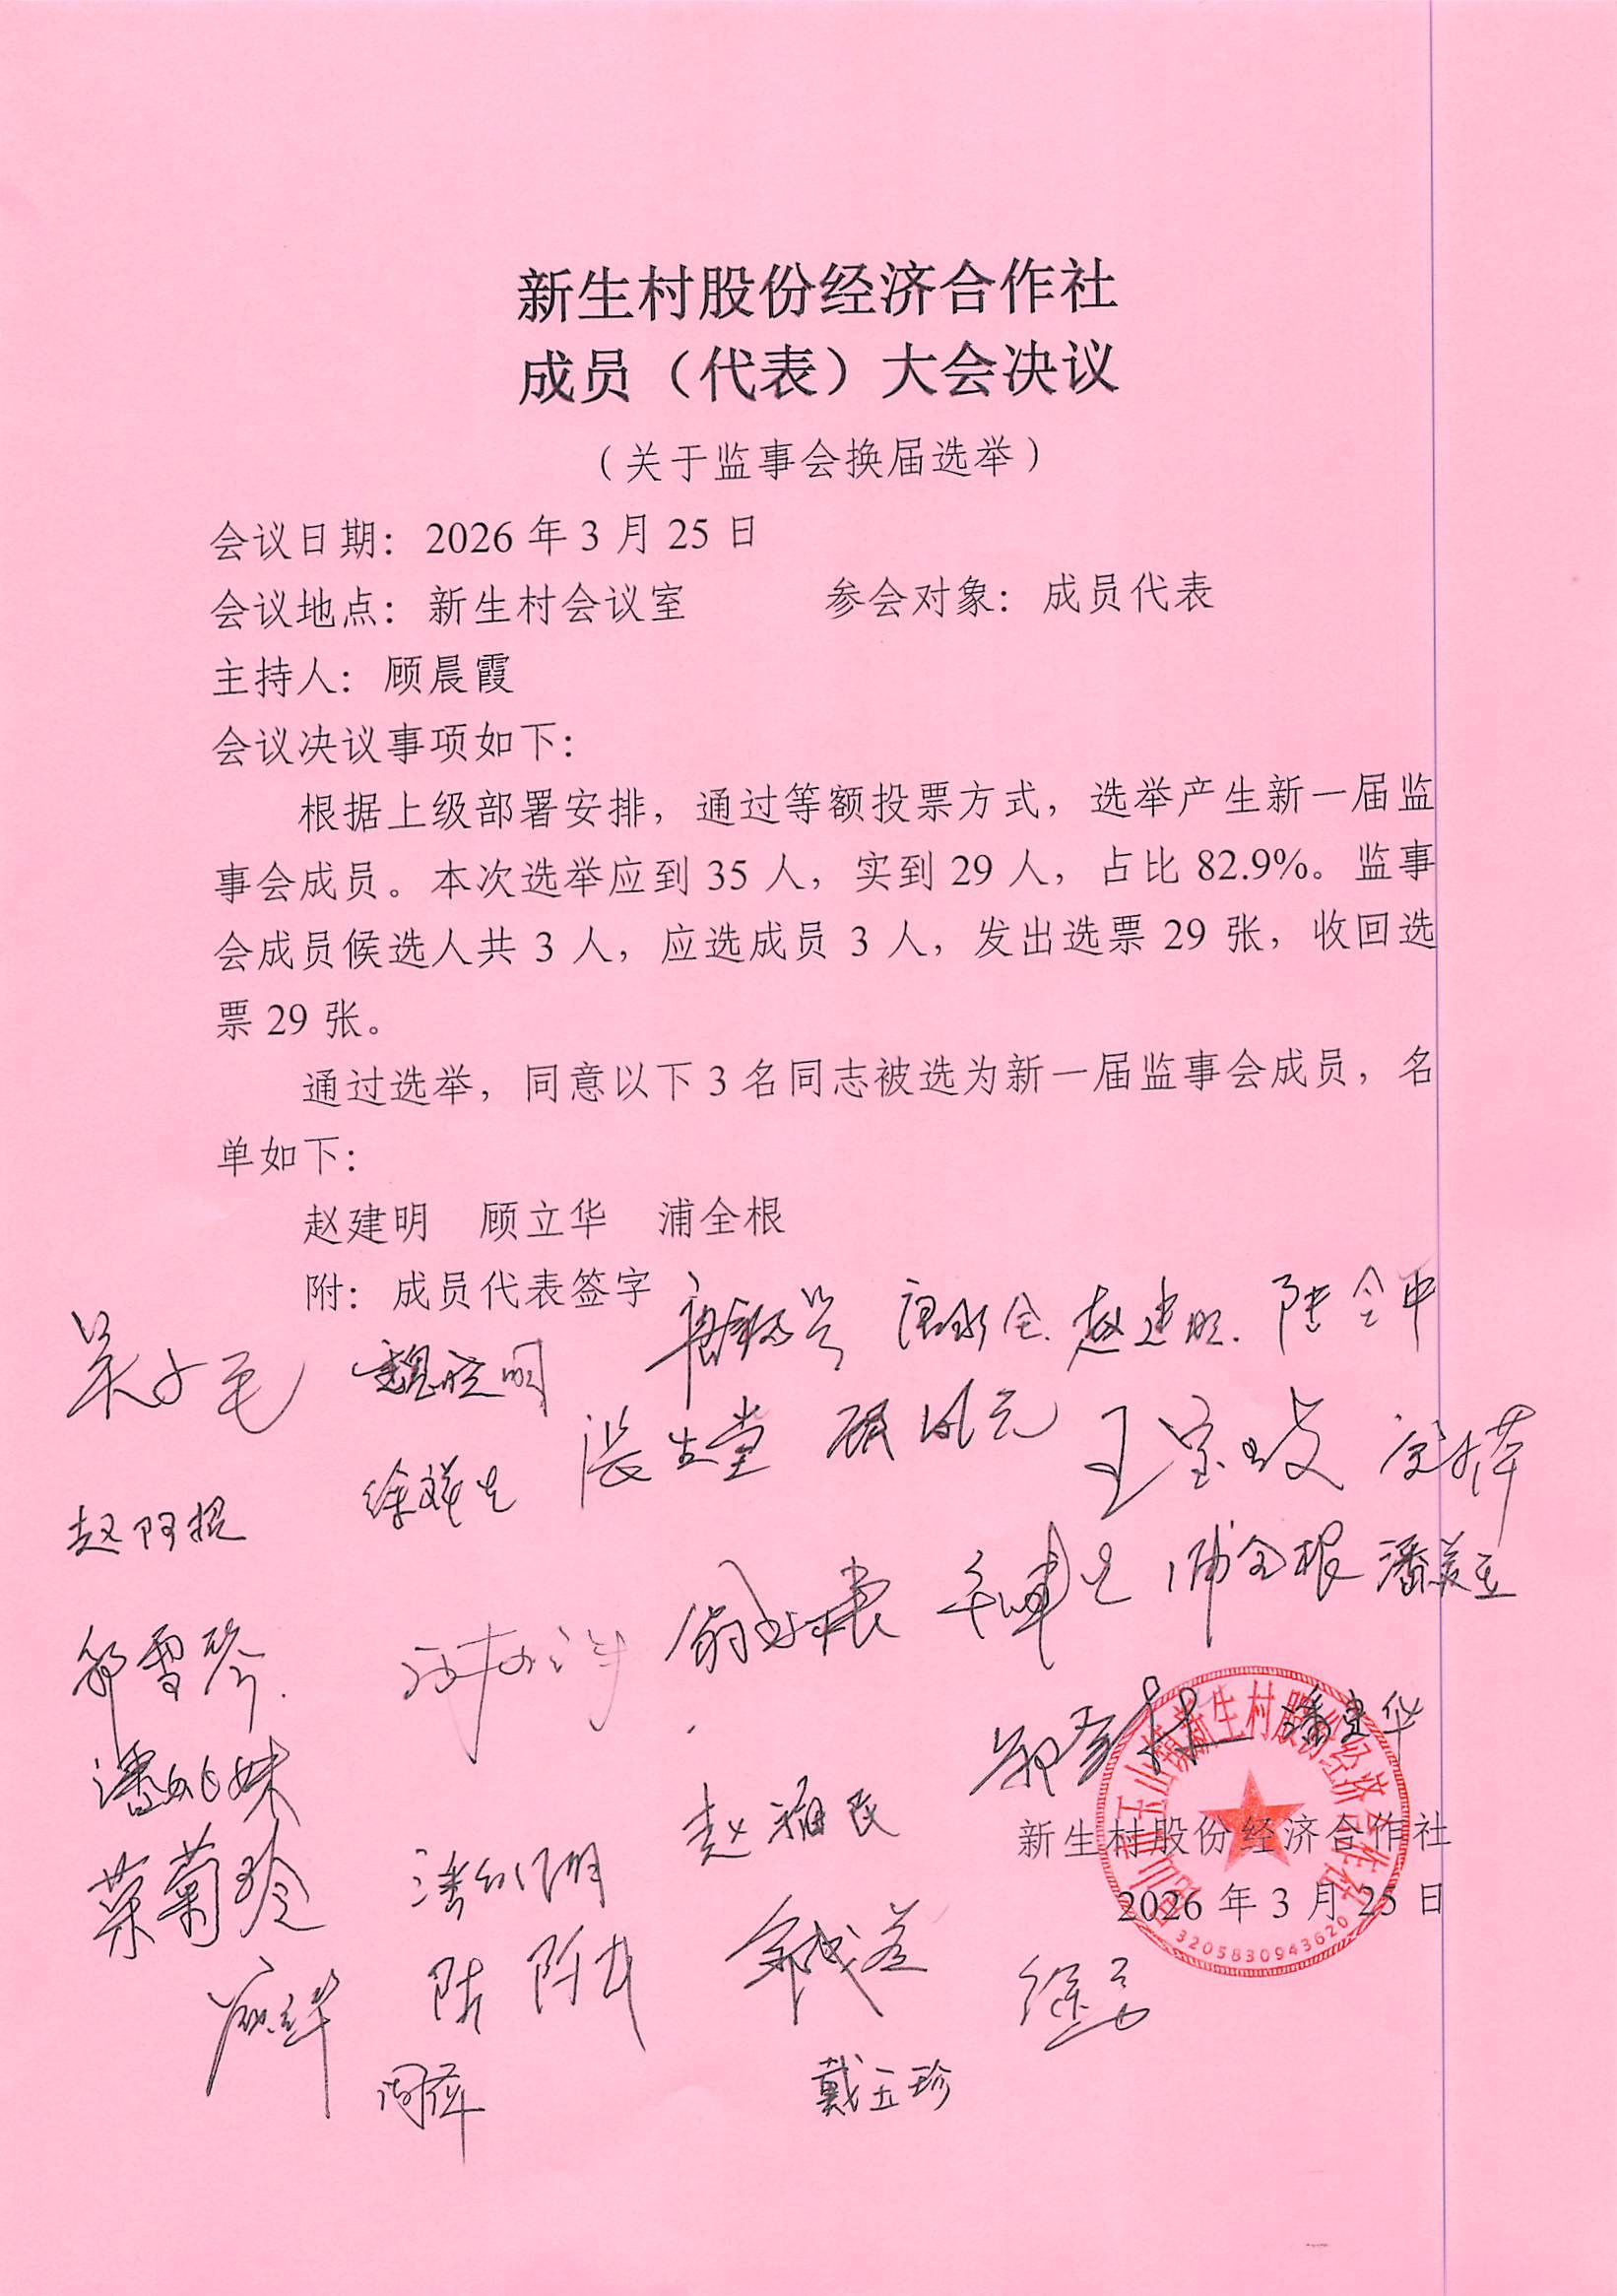 新生村股份经济合作社
成员（代表）大会决议
（关于监事会换届选举）
会议日期：2026 年 3 月 25 日
会议地点：新生村会议室 参会对象：成员代表
主持人：顾晨霞
会议决议事项如下：
根据上级部署安排，通过等额投票方式，选举产生新一届监
事会成员。本次选举应到 35 人，实到 29 人，占比 82.9%。监事
会成员候选人共 3 人，应选成员 3 人，发出选票 29 张，收回选
票 29 张。
通过选举，同意以下 3 名同志被选为新一届监事会成员，名
单如下：
赵建明 顾立华 浦全根
附：成员代表签字
魏晓明 赵建明 陆全平
赵阿根 张生堂 王宝
郭雪琴 浦全根
潘 妹 潘建华
菊玲 赵福民
顾立华
戴玉珍
新生村股份经济合作社
2026 年 3 月 25 日
昆山市玉山镇新生村股份经济合作社
3205830943620